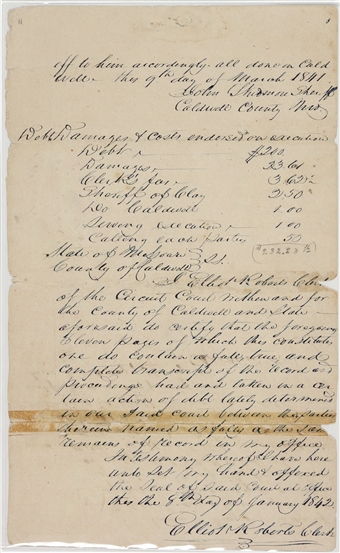 off to him accordingly all done in Cald
well this 9th day of March 1841
John Skidmore Sheriff
Caldwell County Mo
Debt Damages & Costs endorsed on execution
Debt $200
Damages
Clerk's fees 3.62½
Sheriff of Clay 2.50
Do Caldwell 1.00
Serving execution 1.00
Calling each Parties 50
State of Missouri
County of Caldwell Sct.
I Elliot Roberts Clk
of the Circuit Court within and for
the County of Caldwell and State
aforesaid do certify that the foregoing
Eleven pages of which this constitutes
one do contain a full, true and
complete transcript of the record and
Proceedings had and taken in a cer
tain action of debt lately determined
in our said court between the Parties
therein named as fully as the same
remains of record in my office
In Testimony whereof I have here
unto set my hand & affixed
the Seal of said Court at office
this the 8th day of January 1842
Elliot Roberts Clerk